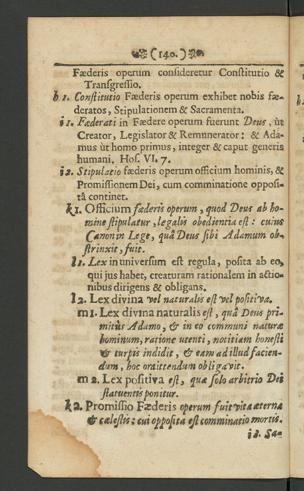 (140.)
Fæderis operum consideretur Constitutio &
Transgressio.
h 1. Constitutio Fæderis operum exhibet nobis fæ-
deratos, Stipulationem & Sacramenta.
i 1. Fæderati in Fædere operum fuerunt Deus, ùt
Creator, Legislator & Remunerator: & Ada-
mus ùt homo primus, integer & caput generis
humani. Hos. VI. 7.
i 2. Stipulatio fæderis operum officium hominis, &
Promissionem Dei, cum comminatione opposi-
tâ continet.
k 1. Officium fæderis operum, quod Deus ab ho-
mine stipulatur, legalis obedientia est: cuius
Canon in Lege, quâ Deus sibi Adamum ob-
strinxit, fuit.
l 1. Lex in universum est regula, posita ab eo,
qui jus habet, creaturam rationalem in actio-
nibus dirigens & obligans.
l 2. Lex divina vel naturalis est vel positiva.
m 1. Lex divina naturalis est, quam Deus pri-
mitùs Adamo, & in eo communi naturæ
hominum, ratione utenti, notitiam honesti
& turpis indidit, & eam ad illud facien-
dum, hoc omittendum obligavit.
m 2. Lex positiva est, quæ solo arbitrio Dei
statuentis ponitur.
k 2. Promissio Fæderis operum fuit vita æterna
& cælestis: cui opposita est comminatio mortis.
i 3. Sa-